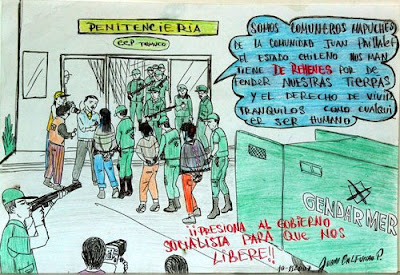 PENITENCIERIA
CCP TEMUCO
SOMOS COMUNEROS MAPUCHES
DE LA COMUNIDAD JUAN PAILLALEF
EL ESTADO CHILENO NOS MAN
TIENE DE REHENES POR DE
FENDER NUESTRAS TIERRAS
Y EL DERECHO DE VIVIR
TRANQUILOS COMO CUALQUI
ER SER HUMANO
GENDARMER
¡¡PRESIONA AL GOBIERNO
SOCIALISTA PARA QUE NOS
LIBERE!!